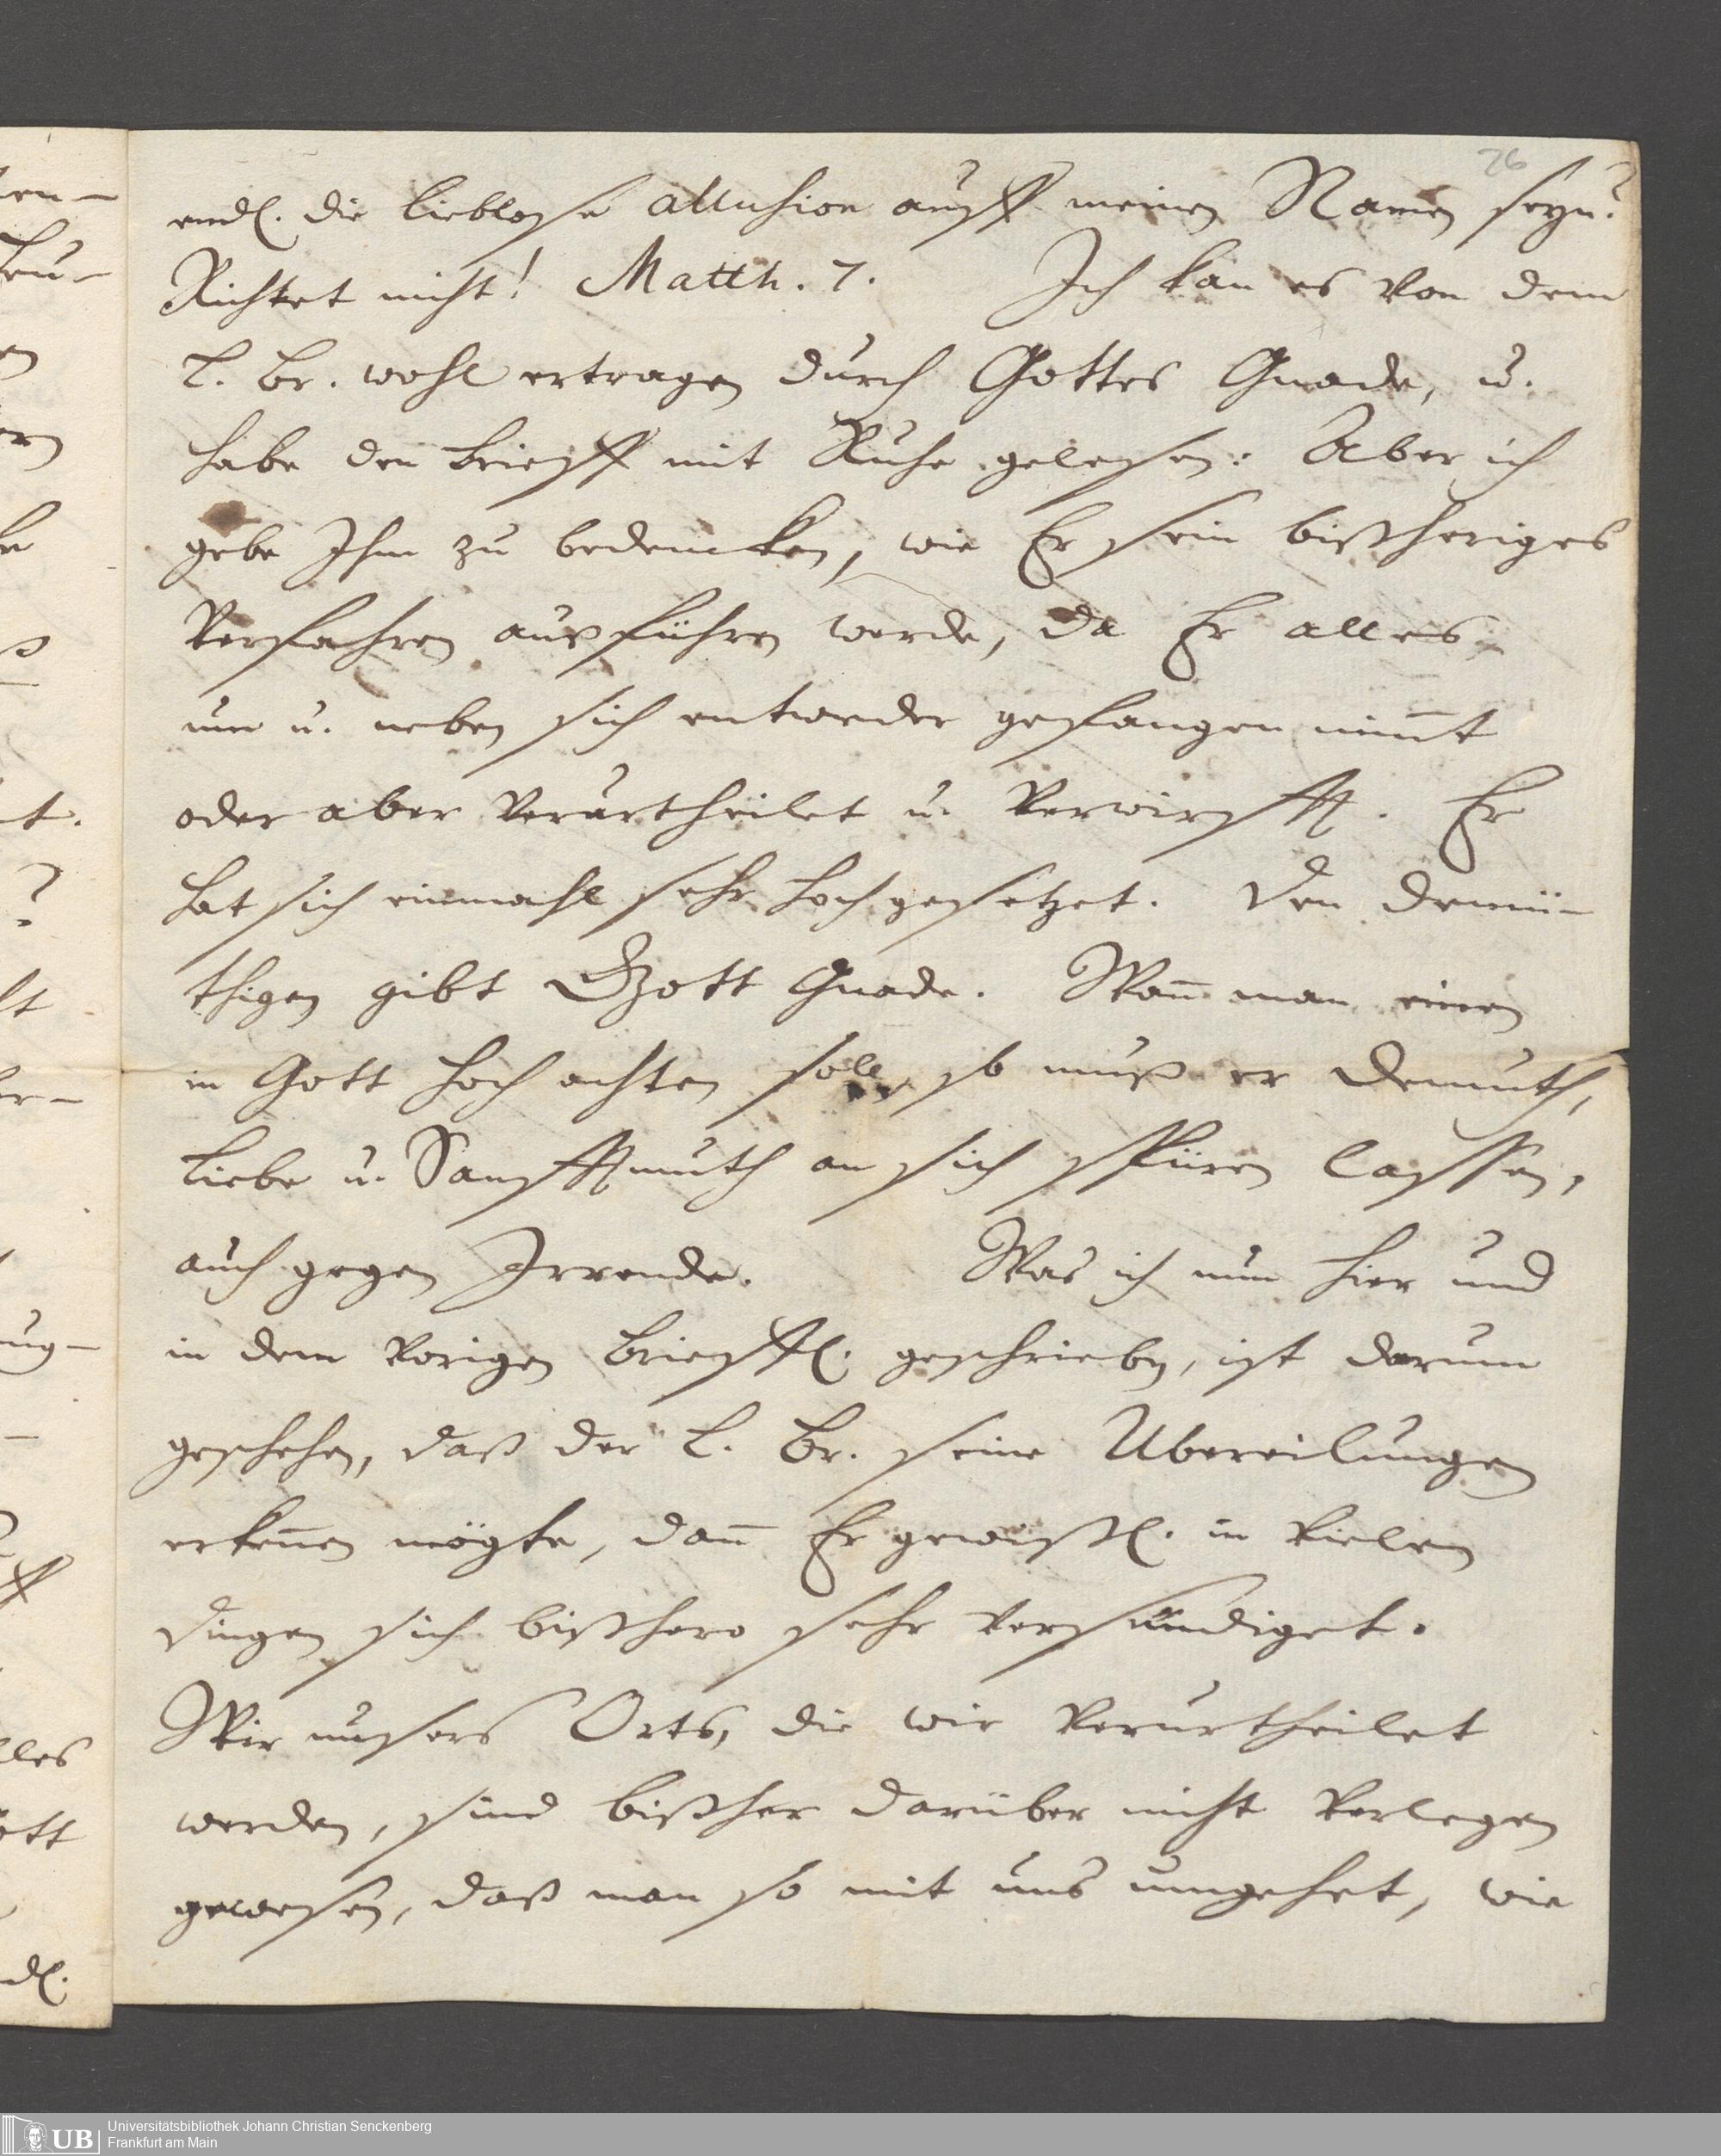 76
endl. die lieblose allusion auff meinen Namen seyn?
Richtet nicht! Matth. 7. Ich kan es von dem
l. Br. wohl ertragen durch Gottes Gnade, u.
habe den Brieff mit Ruhe gelesen: Aber ich
gebe Ihm zu bedencken, wie Er sein bißheriges
Verfahren außführen werde, da Er alles
um u. neben sich entweder gefangen nim̄t
oder aber verurtheilet u. verwirfft. Er
hat sich einmahl sehr hoch gesetzet. Den demü-
thigen gibt Gott Gnade. Wan̄ man einen
in Gott hoch achten soll, so muß er Demuth,
Liebe u. Sanfftmuth an sich spüren lassen,
auch gegen Irrende. Was ich nun hier und
in dem vorigen Brieffl. geschrieben, ist darum
geschehen, daß der l. Br. seine Ubereilungen
erken̄en mögte, dan̄ Er gewißl. in vielen
Dingen sich bißhero sehr versündiget.
Wir unsers Orts, die wir verurtheilet
werden, sind bißher darüber nicht verlegen
gewesen, daß man so mit uns umgehet, wie
en-
t.
?
er-
ug-
lles
ott
dl.
UB
Universitätsbibliothek Johann Christian Senckenberg
Frankfurt am Main